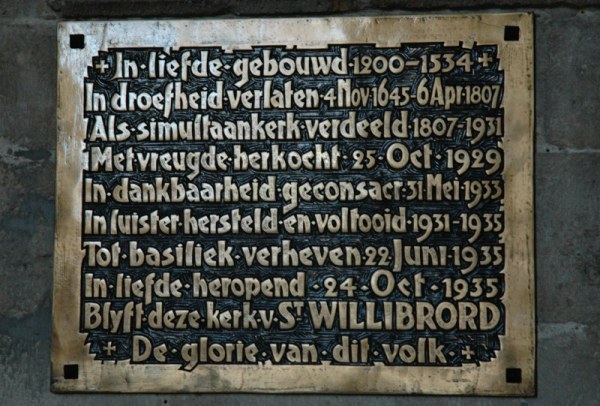 + In·liefde·gebouwd·1200-1534·+
In droefheid·verlaten·4 Nov·1645-6 Apr·1807
Als·simultaankerk·verdeeld·1807-1931
Met vreugde·herkocht·25·Oct·1929
In·dankbaarheid·geconsacr·31 Mei·1933
In luister·hersteld·en·voltooid·1931-1935
Tot·basiliek·verheven·22·Juni·1935
In·liefde·heropend·24·Oct·1935
Blyft·deze·kerk·v·St WILLIBRORD
+·De·glorie·van·dit·volk·+